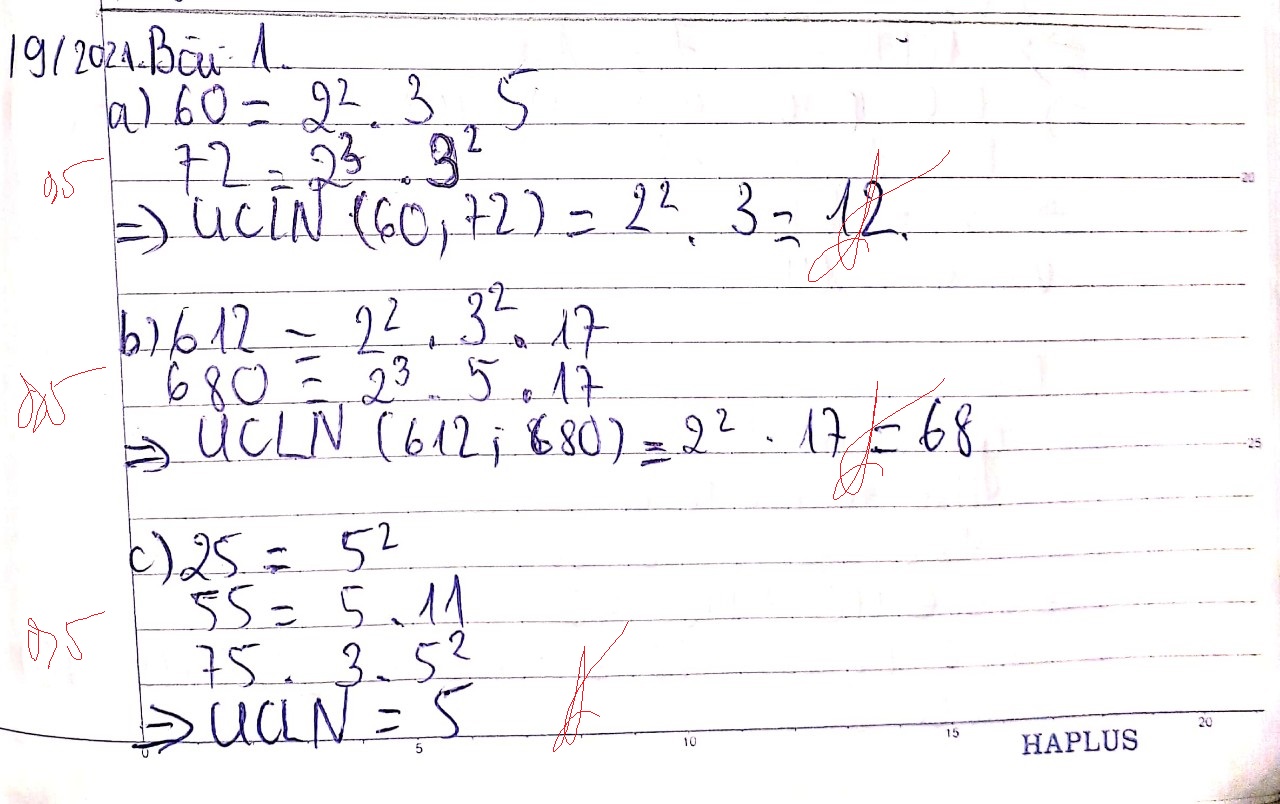 19/2021. Bài 1.
a) 60 = 2². 3 5
72 = 2³. 3²
0,5
=> ƯCLN (60; 72) = 2². 3 = 12.
b) 612 = 2². 3². 17
680 = 2³. 5. 17
=> ƯCLN (612; 680) = 2². 17 = 68
c) 25 = 5²
55 = 5. 11
0,5
75. 3. 5²
=> ƯCLN = 5
5 10 15 20
HAPLUS
20
25